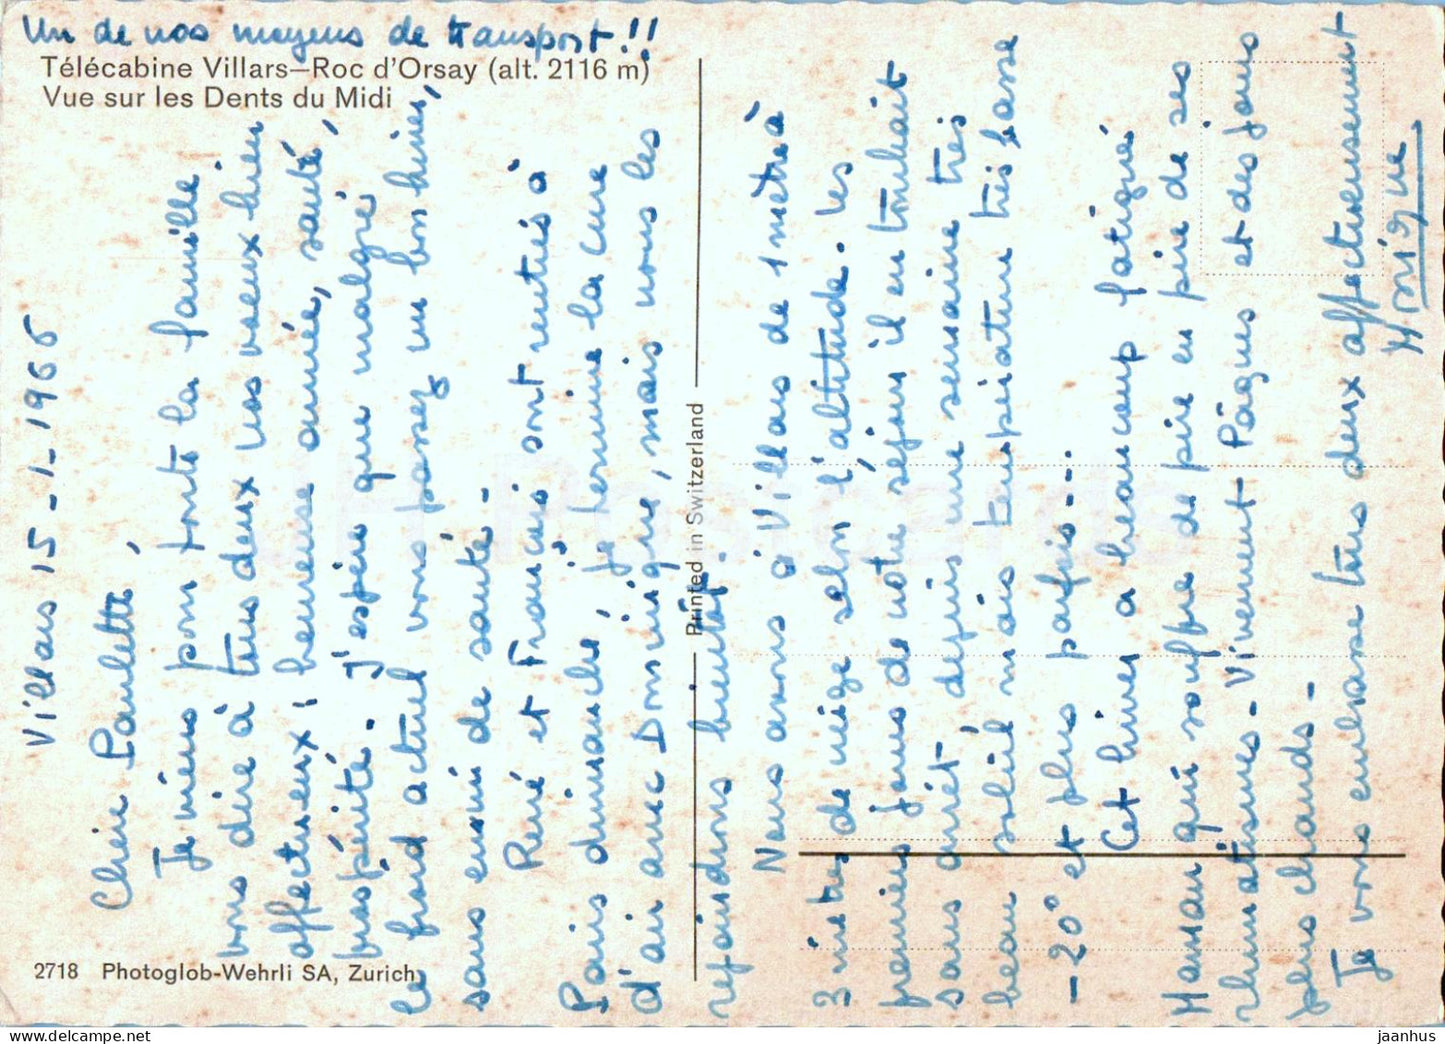 Un de nos moyens de transport!!
Télécabine Villars—Roc d'Orsay (alt. 2116 m)
Vue sur les Dents du Midi
Villars 15-1-1966
Chère Paulette,
Je viens pour toute la famille
vous dire à tous deux nos vœux bien
affectueux: heureuse année, santé,
prospérité. J'espère que malgré
le froid actuel vous passez un bon hiver,
sans ennui de santé.
René et François sont rentrés à
Paris dimanche, je termine la cure
d'air avec Dominique, mais nous les
rejoindrons bientôt.
Nous avons à Villars de 1 mètre à
3 mètres de neige selon l'altitude. Les
premiers jours de notre séjour il en tombait
sans arrêt, depuis une semaine très
beau soleil mais température très basse
-20° et plus parfois...
Cet hiver a beaucoup fatigué
Maman qui souffre de pire en pire de ses
rhumatismes. Vivement Pâques et des jours
plus chauds.
Je vous embrasse tous deux affectueusement
Monique
2718 Photoglob-Wehrli SA, Zurich
Printed in Switzerland
JH Postcards
jaanhus